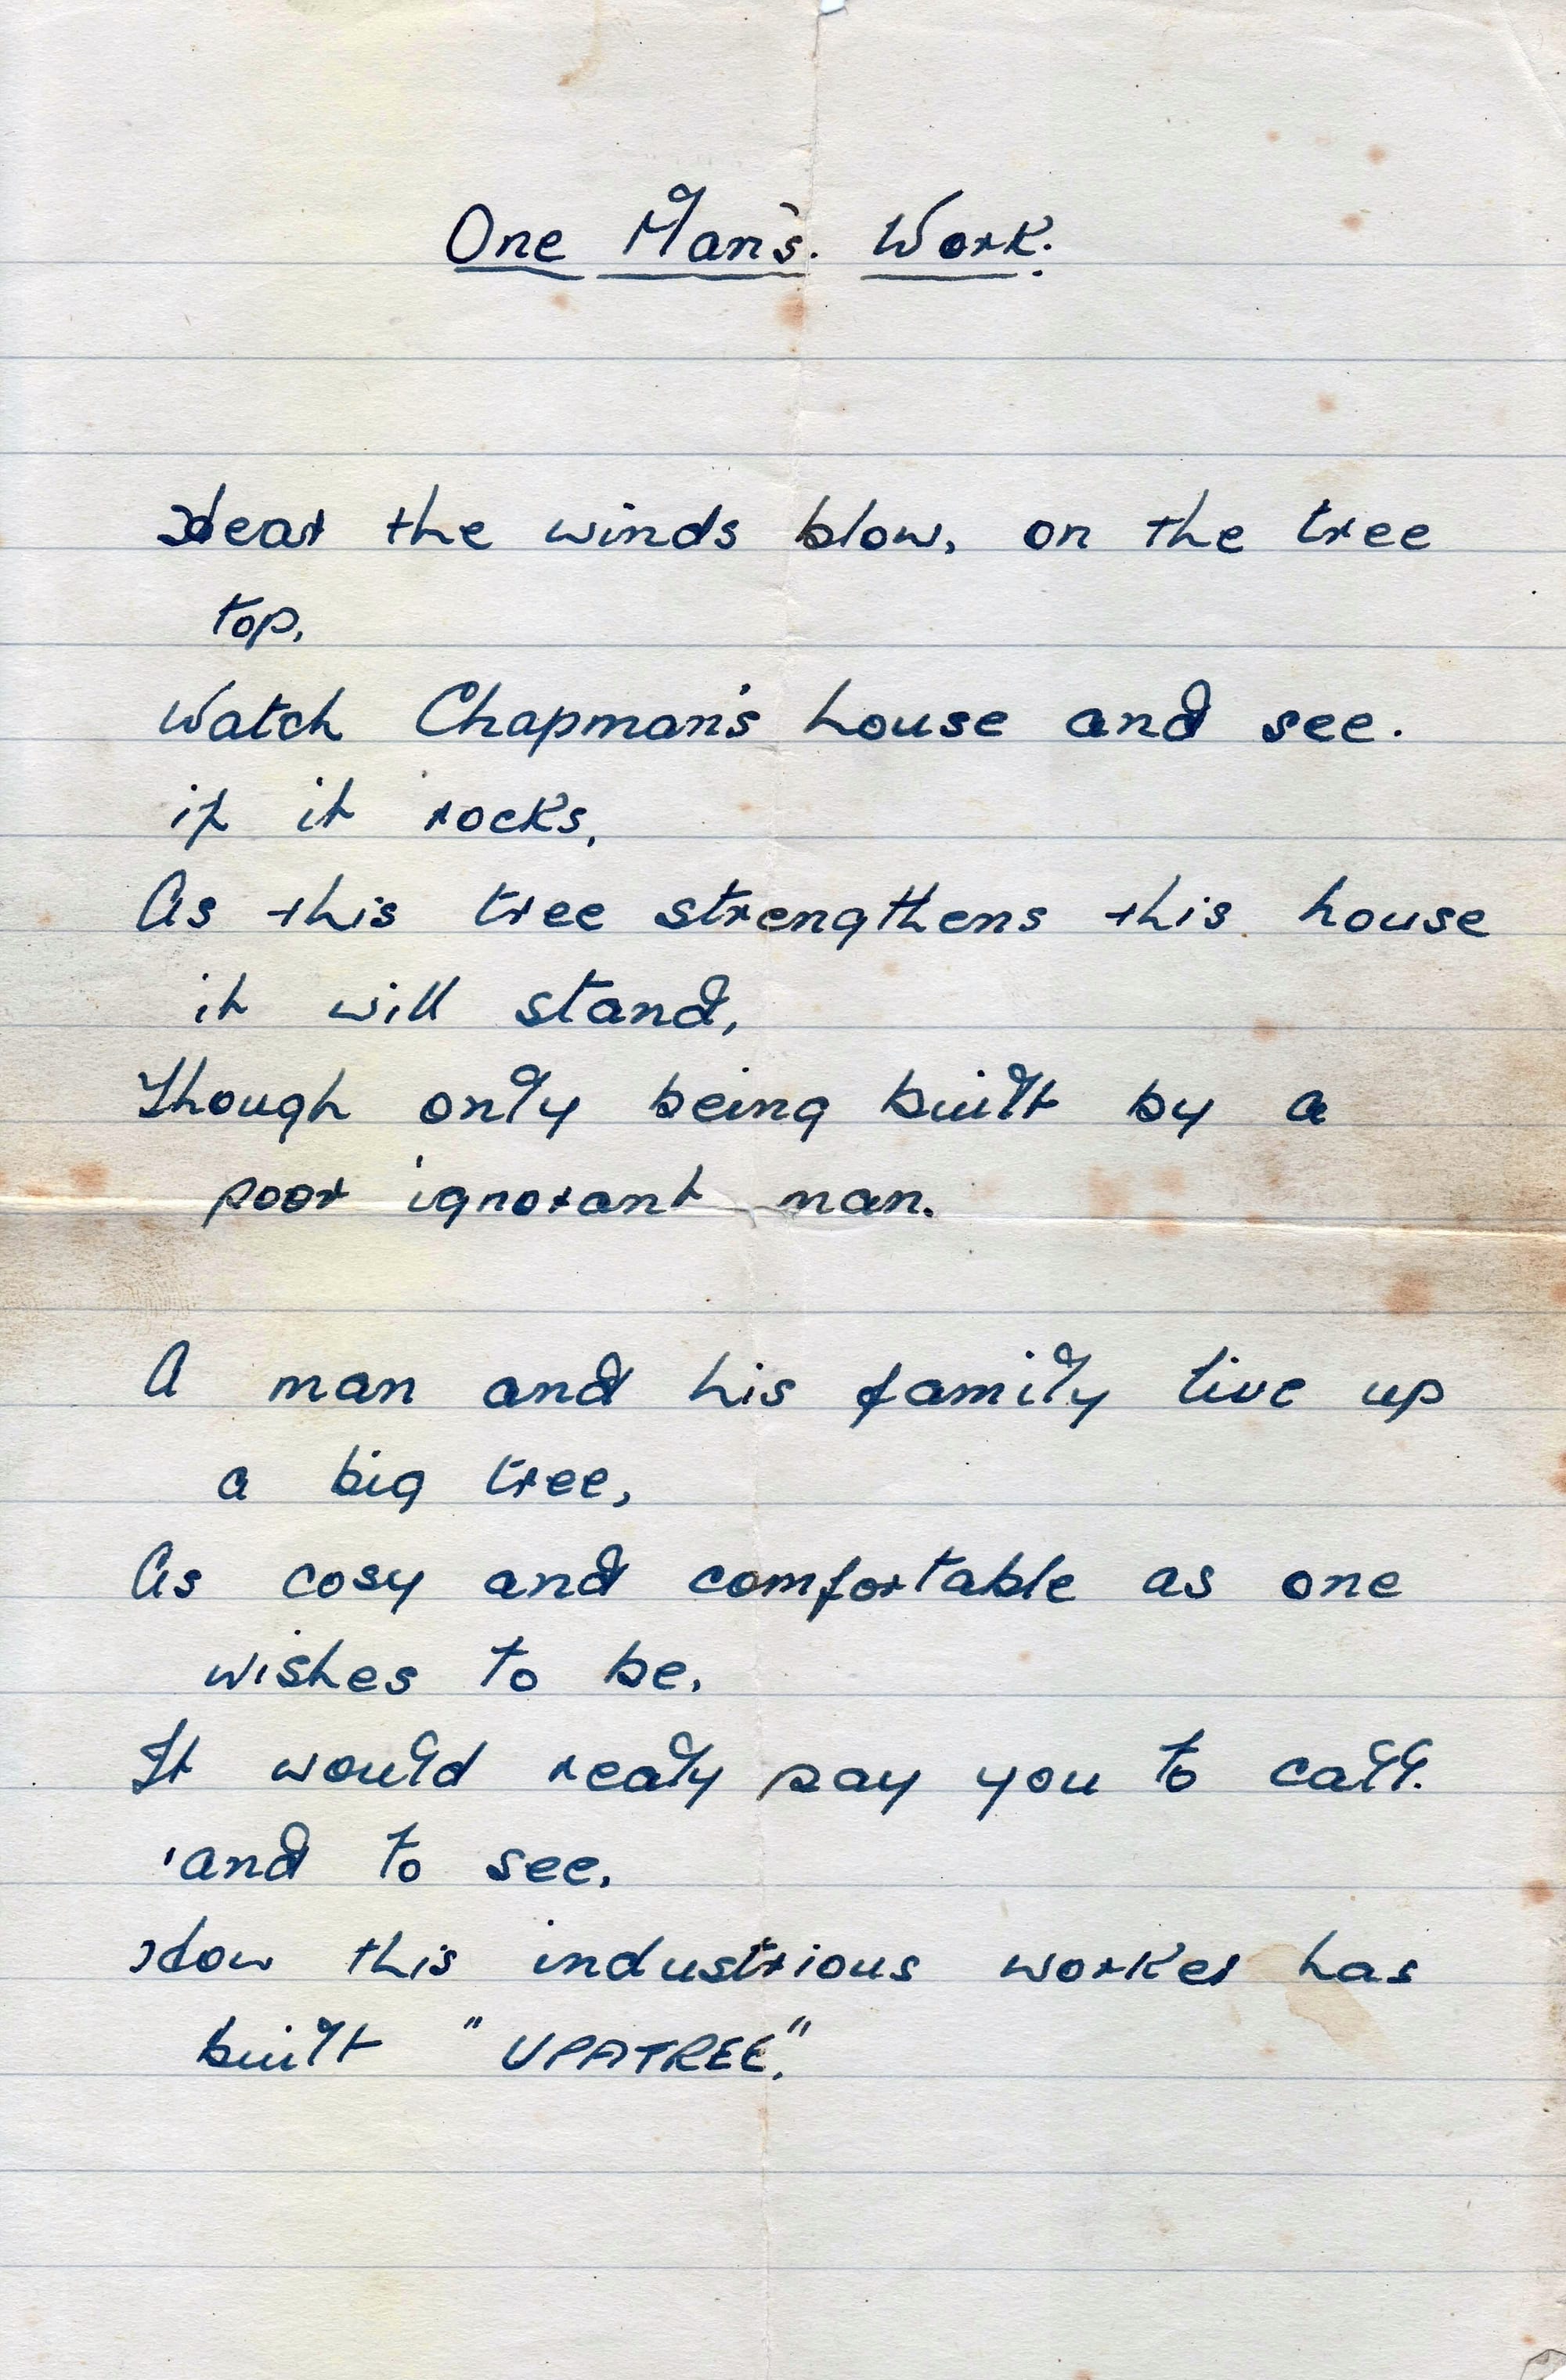 One Man's. Work.
Hear the winds blow, on the tree
top,
Watch Chapman's house and see.
if it rocks,
As this tree strengthens this house
it will stand,
Though only being built by a
poor ignorant man.
A man and his family live up
a big tree,
As cosy and comfortable as one
wishes to be,
It would realy pay you to call.
and to see,
How this industrious worker has
built "UPATREE."